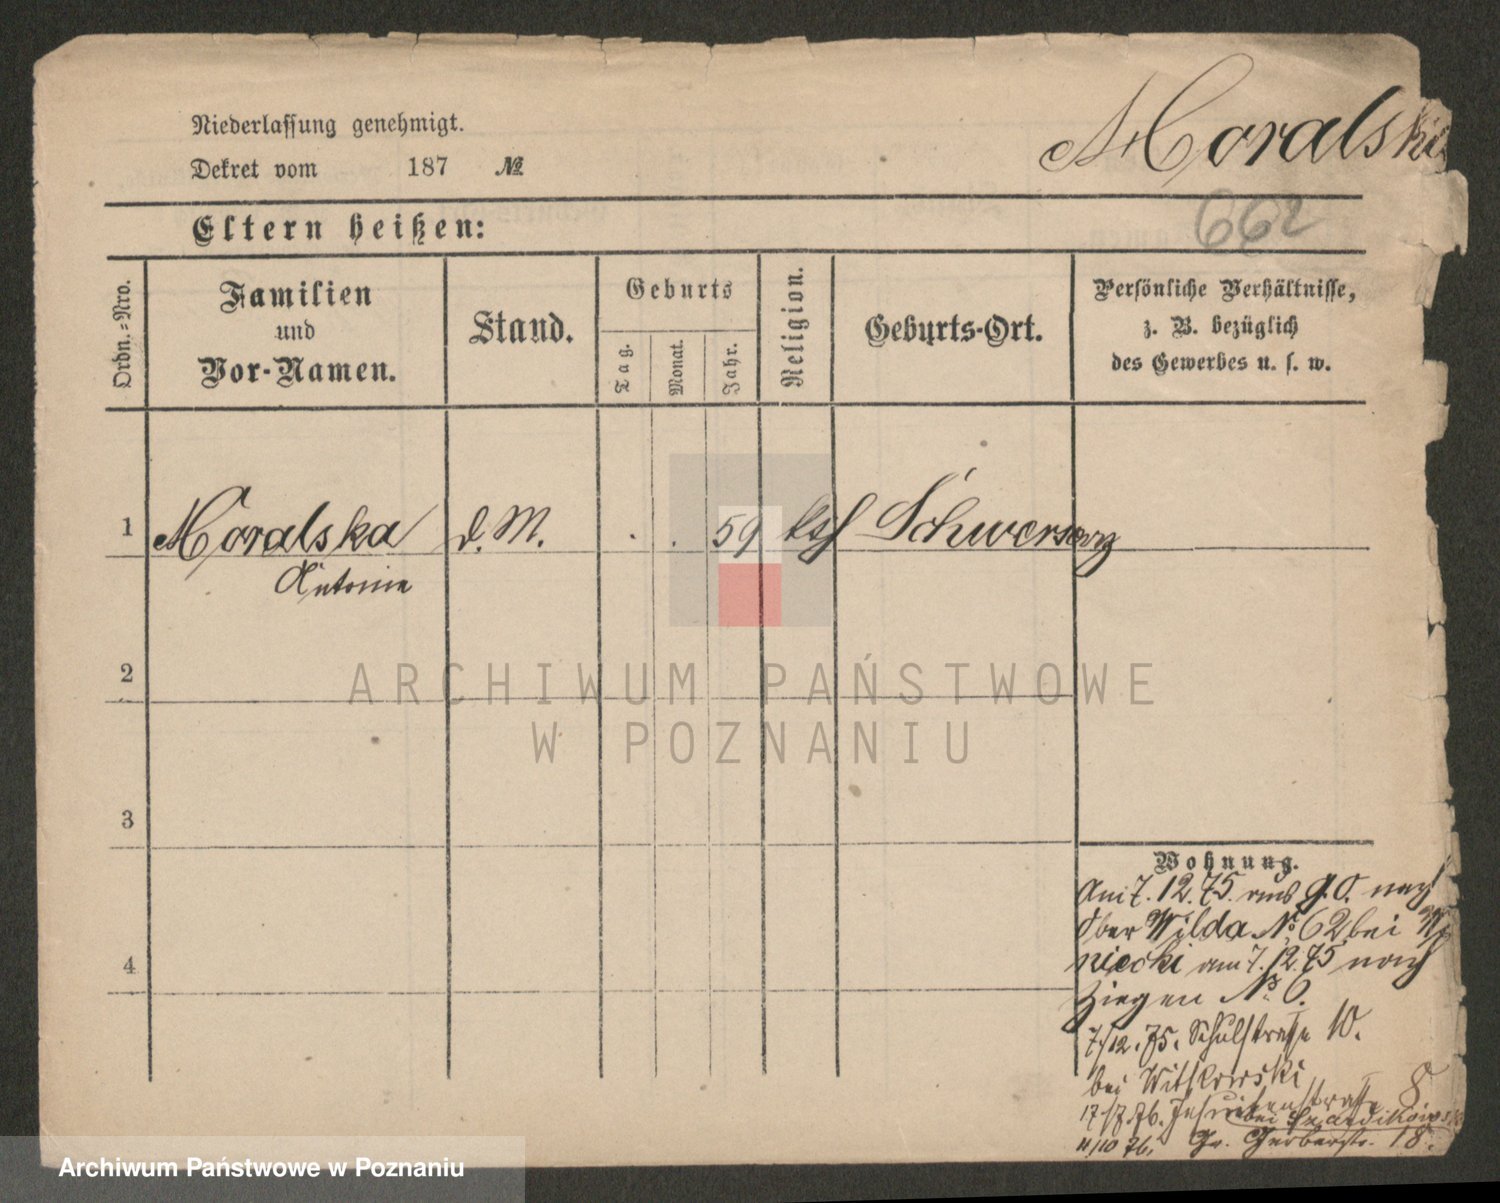 Niederlassung genehmigt.
Moralska
Dekret vom 187 №
662
Eltern heißen:
Ordn.-Nro.
Familien
und
Vor-Namen.
Stand.
Geburts
Tag.
Monat.
Jahr.
Religion.
Geburts-Ort.
Persönliche Verhältnisse,
z. B. bezüglich
des Gewerbes u. s. w.
1 Moralska d. M. . . 59 kth Schwersenz
Antonie
2
3
4
Wohnung.
Am 7. 12. 75. aus g. O. nach
Ober Wilda № 62 bei
am 7. 12. 75 nach
Ziegen № 6.
7/12. 75. Schulstrasse 10.
bei Witkowski
17/7. 76. Jesuitenstrasse 8
bei
11/10 76. Gr. Gerberstr. 18.
ARCHIWUM PAŃSTWOWE
W POZNANIU
Archiwum Państwowe w Poznaniu